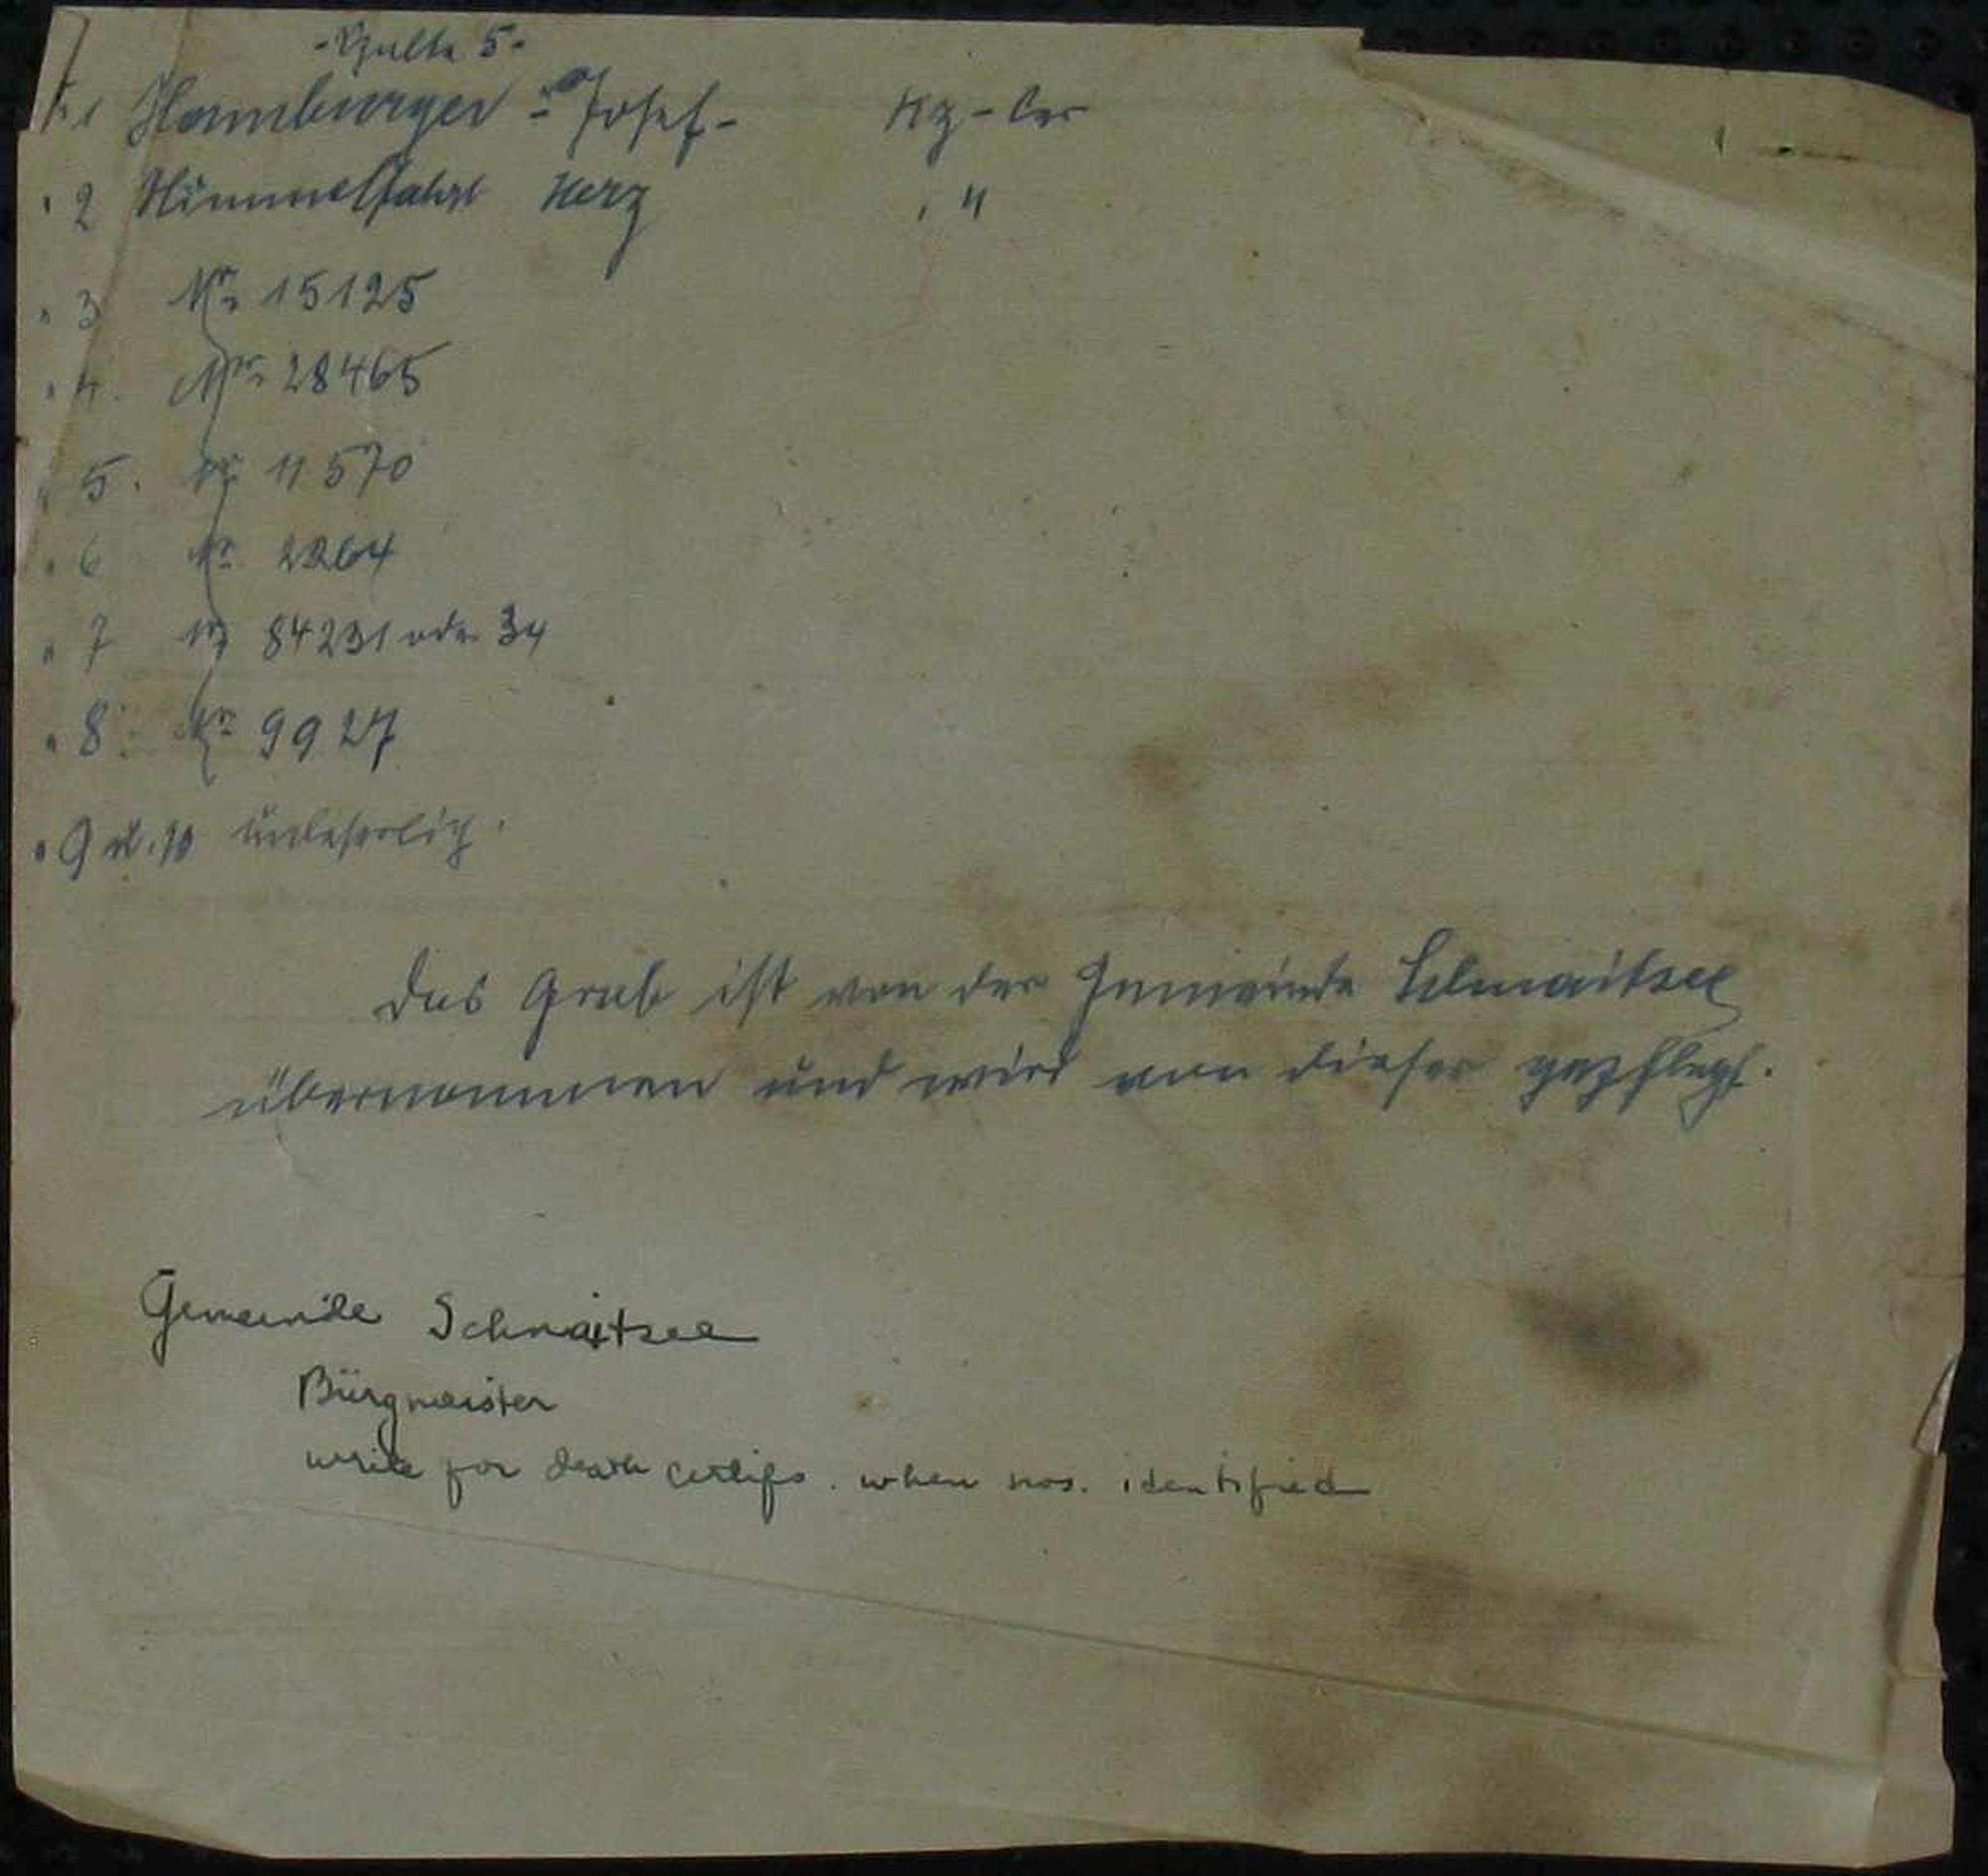 - Spalte 5 -
Nr 1 Hamburger - Josef - Kz-ler
" 2 Himmelfahrt Herz " "
" 3 Nr. 15125
" 4. Nr. 28465
" 5. Nr. 11570
" 6 Nr. 2264
" 7 Nr. 84231 oder 34
" 8. Nr. 9927
" 9 u. 10 unleserlich.
Das Grab ist von der Gemeinde Schnaitsee
übernommen und wird von dieser gepflegt.
Gemeinde Schnaitsee
Bürgmeister
write for death certifs. when nos. identified